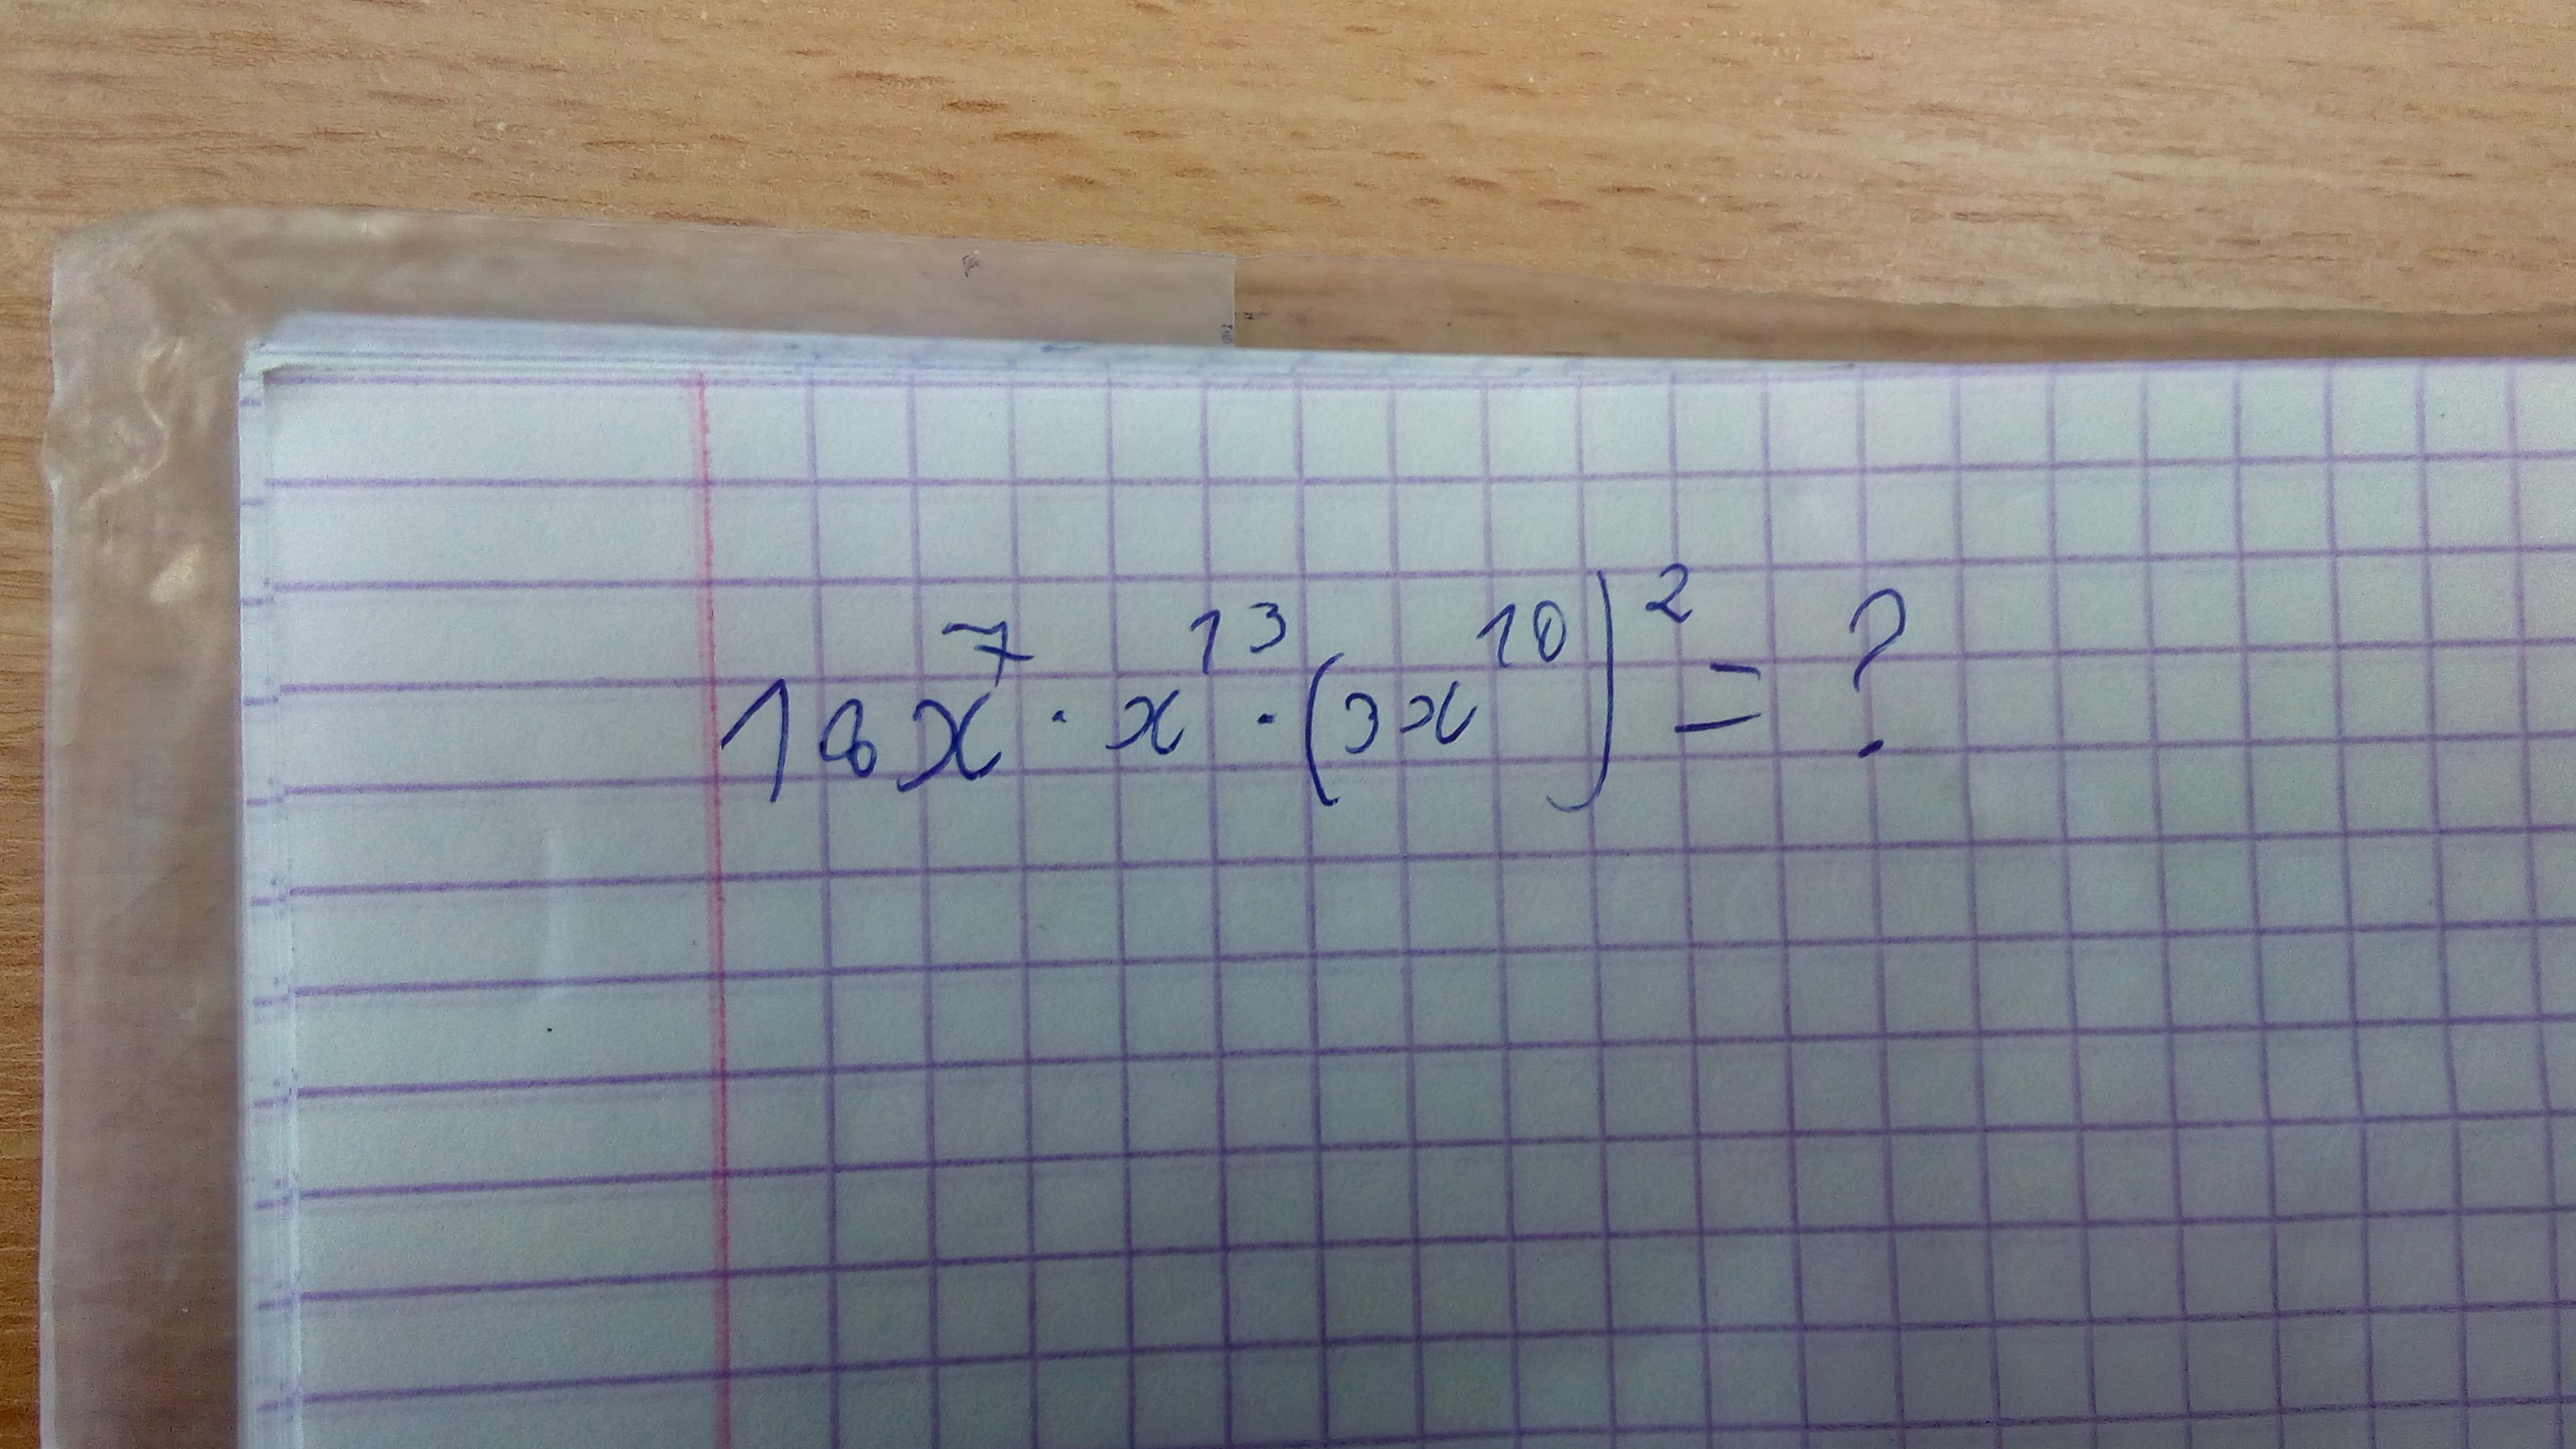 18x⁷ · x¹³ · (3x¹⁰)² = ?